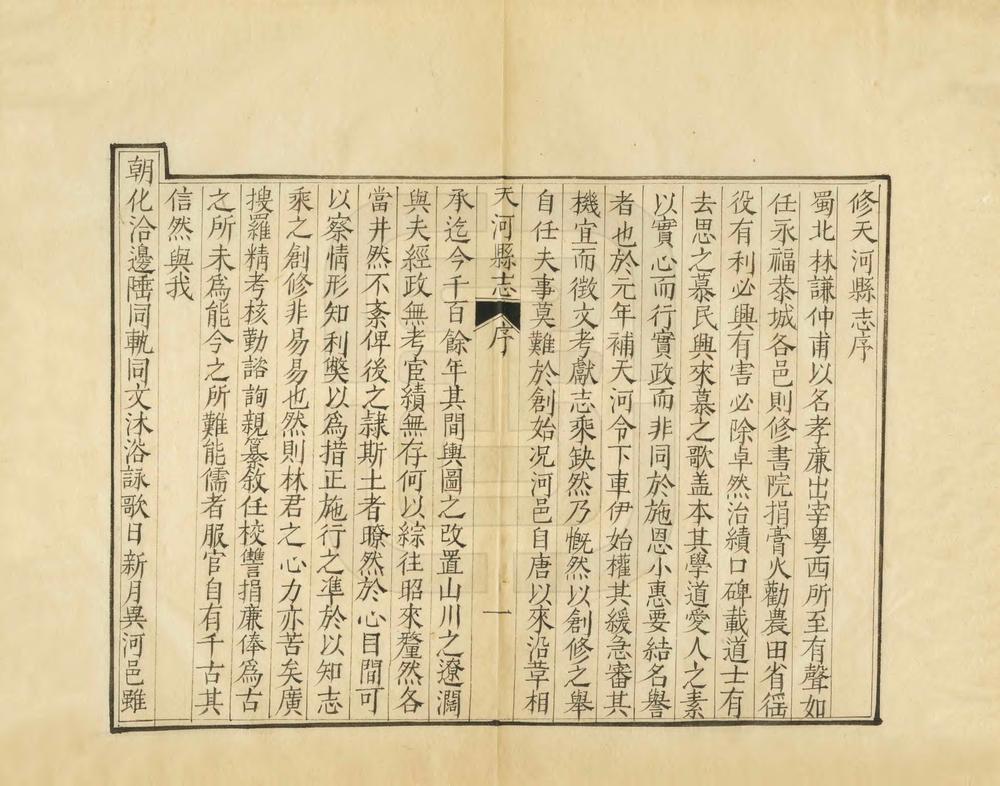 修天河縣志序
蜀北林謙仲甫以名孝廉出宰粵西所至有聲如
任永福恭城各邑則修書院捐膏火勸農田省徭
役有利必興有害必除卓然治績口碑載道士有
去思之慕民興來慕之歌盖本其學道愛人之素
以實心而行實政而非同於施恩小惠要結名譽
者也於元年補天河令下車伊始權其緩急審其
機宜而徴文考獻志乘缺然乃慨然以創修之舉
自任夫事莫難於創始况河邑自唐以來沿革相
天河縣志 序 一
承迄今千百餘年其間輿圖之改置山川之遼濶
與夫經政無考宦績無存何以綜往昭來釐然各
當井然不紊俾後之隷斯土者瞭然於心目間可
以察情形知利獘以為措正施行之凖於以知志
乘之創修非易易也然則林君之心力亦苦矣廣
搜羅精考核勤諮詢親纂敘任校讐捐廉俸為古
之所未為能今之所難能儒者服官自有千古其
信然與我
朝化洽邊陲同軌同文沐浴詠歌日新月異河邑雖